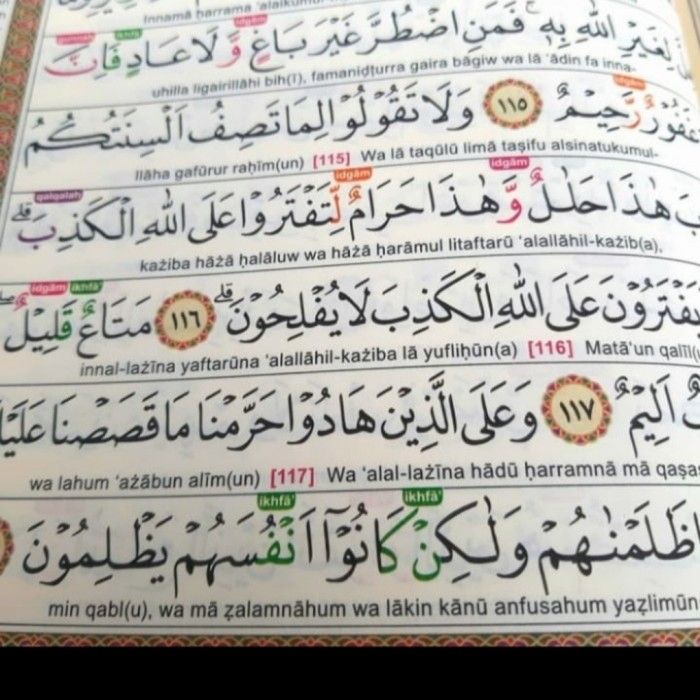 Innamā ḥarrama ‘alaikumul
idgām
لِغَيْرِ اللّٰهِ بِهٖ ۚ فَمَنِ اضْطُرَّ غَيْرَ بَاغٍ وَّلَا عَادٍ فَاِنَّ
uhilla ligairillāhi bih(ī), famaniḍṭurra gaira bāgiw wa lā ‘ādin fa inna-
idgām
غَفُوْرٌ رَّحِيْمٌ ١١٥ وَلَا تَقُوْلُوْا لِمَا تَصِفُ اَلْسِنَتُكُمُ
llāha gafūrur raḥīm(un) [115] Wa lā taqūlū limā taṣifu alsinatukumul-
qalqalah idgām idgām
هٰذَا حَلٰلٌ وَّهٰذَا حَرَامٌ لِّتَفْتَرُوْا عَلَى اللّٰهِ الْكَذِبَۗ
każiba hāżā ḥalāluw wa hāżā ḥarāmul litaftarū ‘alallāhil-każib(a),
idgām ikhfā’
يَفْتَرُوْنَ عَلَى اللّٰهِ الْكَذِبَ لَا يُفْلِحُوْنَۗ ١١٦ مَتَاعٌ قَلِيْلٌ
innal-lażīna yaftarūna ‘alallāhil-każiba lā yufliḥūn(a) [116] Matā‘un qalīl(
اَلِيْمٌ ١١٧ وَعَلَى الَّذِيْنَ هَادُوْا حَرَّمْنَا مَا قَصَصْنَا
wa lahum ‘ażābun alīm(un) [117] Wa ‘alal-lażīna hādū ḥarramnā mā qaṣaṣ
ikhfā’ ikhfā’
ظَلَمْنٰهُمْ وَلٰكِنْ كَانُوْٓا اَنْفُسَهُمْ يَظْلِمُوْنَ
min qabl(u), wa mā ẓalamnāhum wa lākin kānū anfusahum yaẓlimūn